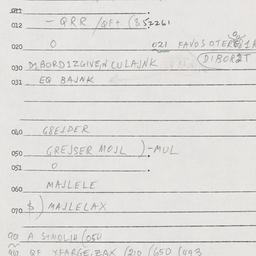 011
012 - QRR /QF+ (352261
020 0 021 FAVOSOTERG1A
030 DIBORDIZGIVENCULAJNK (DIBORZT
031 EQ BAJNK
040 GREJDER
050 GREJSER MOJL ) -MUL
051 0
060 MAJLELE
070 $) MAJLELAX
90 A SIMOLIH (050
QF YFARGE,ZAX (210 (650 (443